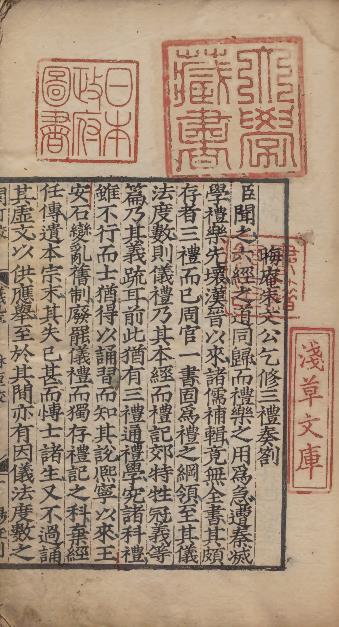 大學
藏書
日本
政府
圖書
淺草文庫
晦庵朱文公乞修三禮奏劄
臣聞之六經之道同歸而禮樂之用爲急遭秦滅
學禮樂先壞漢晉以來諸儒補輯竟無全書其頗
存者三禮而已周官一書固爲禮之綱領至其儀
法度數則儀禮乃其本經而禮記郊特牲冠義等
篇乃其義疏耳前此猶有三禮通禮學究諸科禮
雖不行而士猶得以誦習而知其說熙寧以來王
安石變亂舊制廢罷儀禮而獨存禮記之科棄經
任傳遺本宗末其失已甚而博士諸生又不過誦
其虛文以供應舉至於其間亦有因儀法度數之